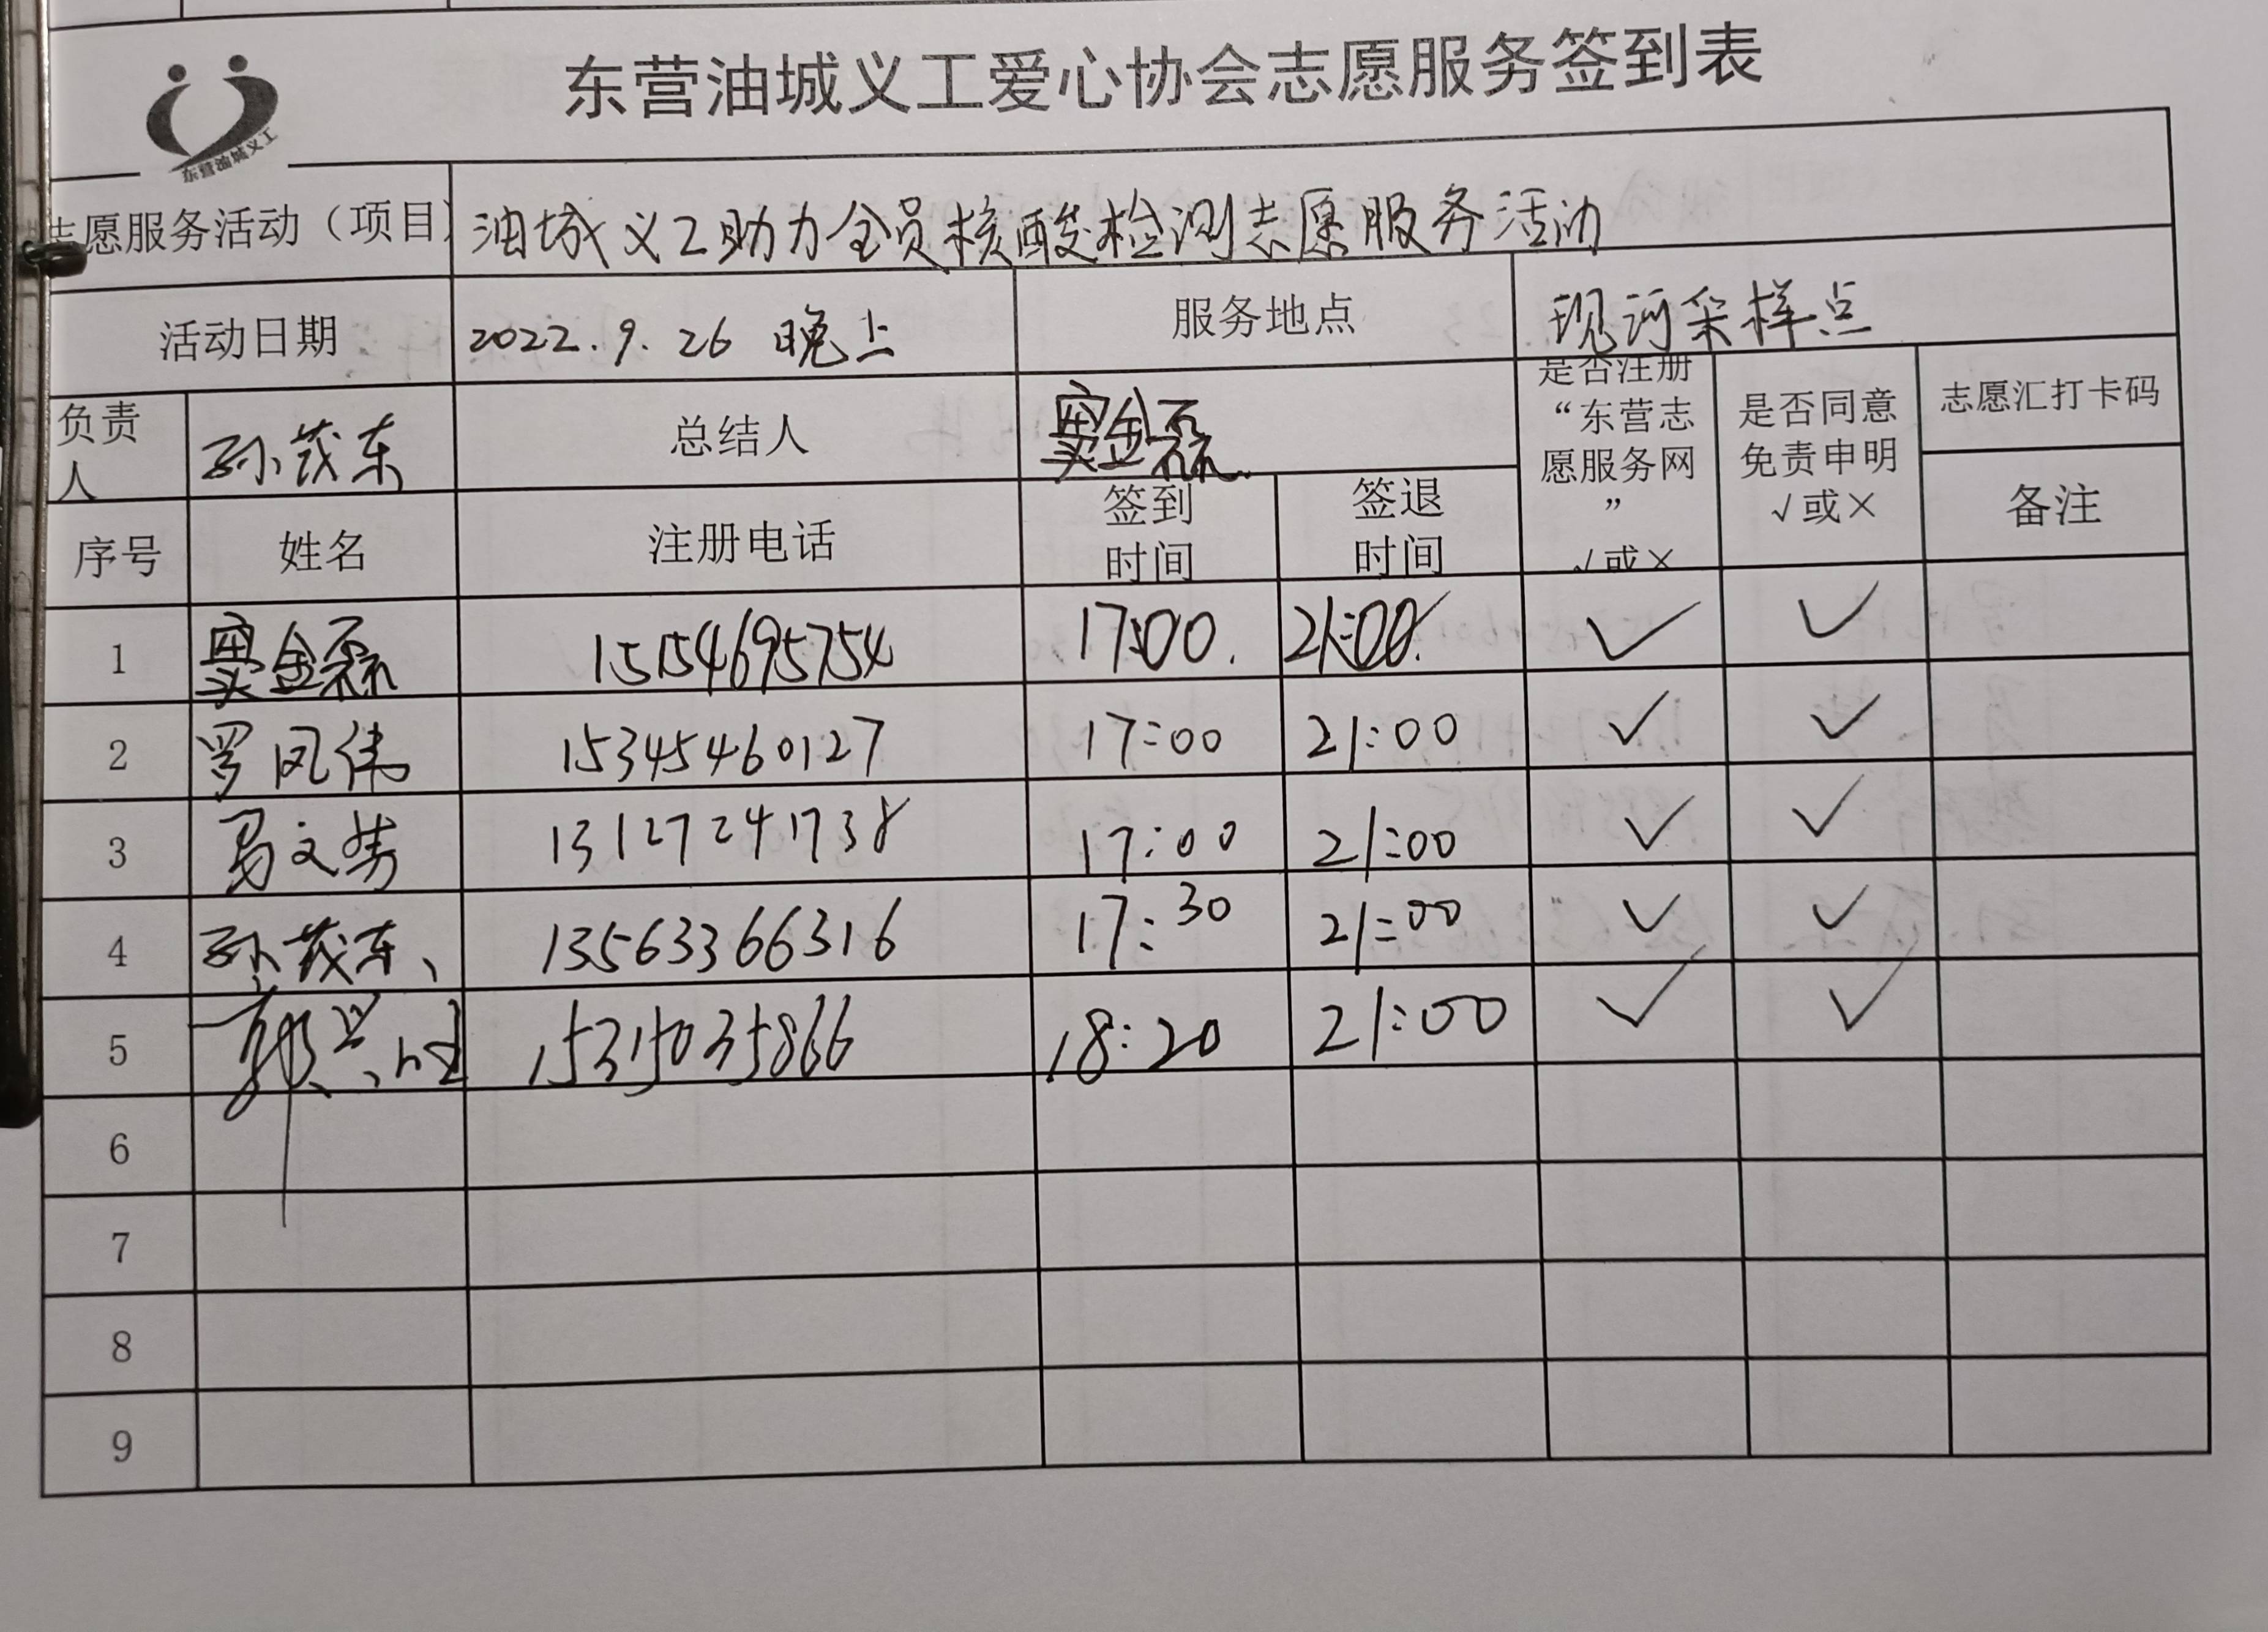 东营油城义工爱心协会志愿服务签到表
东营油城义工
志愿服务活动（项目） 油城义工助力全员核酸检测志愿服务活动
活动日期 2022.9.26 晚上 服务地点 现河采样点
负责人 孙茂东 总结人 窦金磊 是否注册“东营志愿服务网” √或× 是否同意免责申明 √或× 志愿汇打卡码
序号 姓名 注册电话 签到时间 签退时间 备注
1 窦金磊 15154695754 17:00. 21:00. ✓ ✓
2 罗凤伟 15345460127 17:00 21:00 ✓ ✓
3 13127241738 17:00 21:00 ✓ ✓
4 孙茂东、 13563366316 17:30 21:00 ✓ ✓
5 15315035866 18:20 21:00 ✓ ✓
6
7
8
9